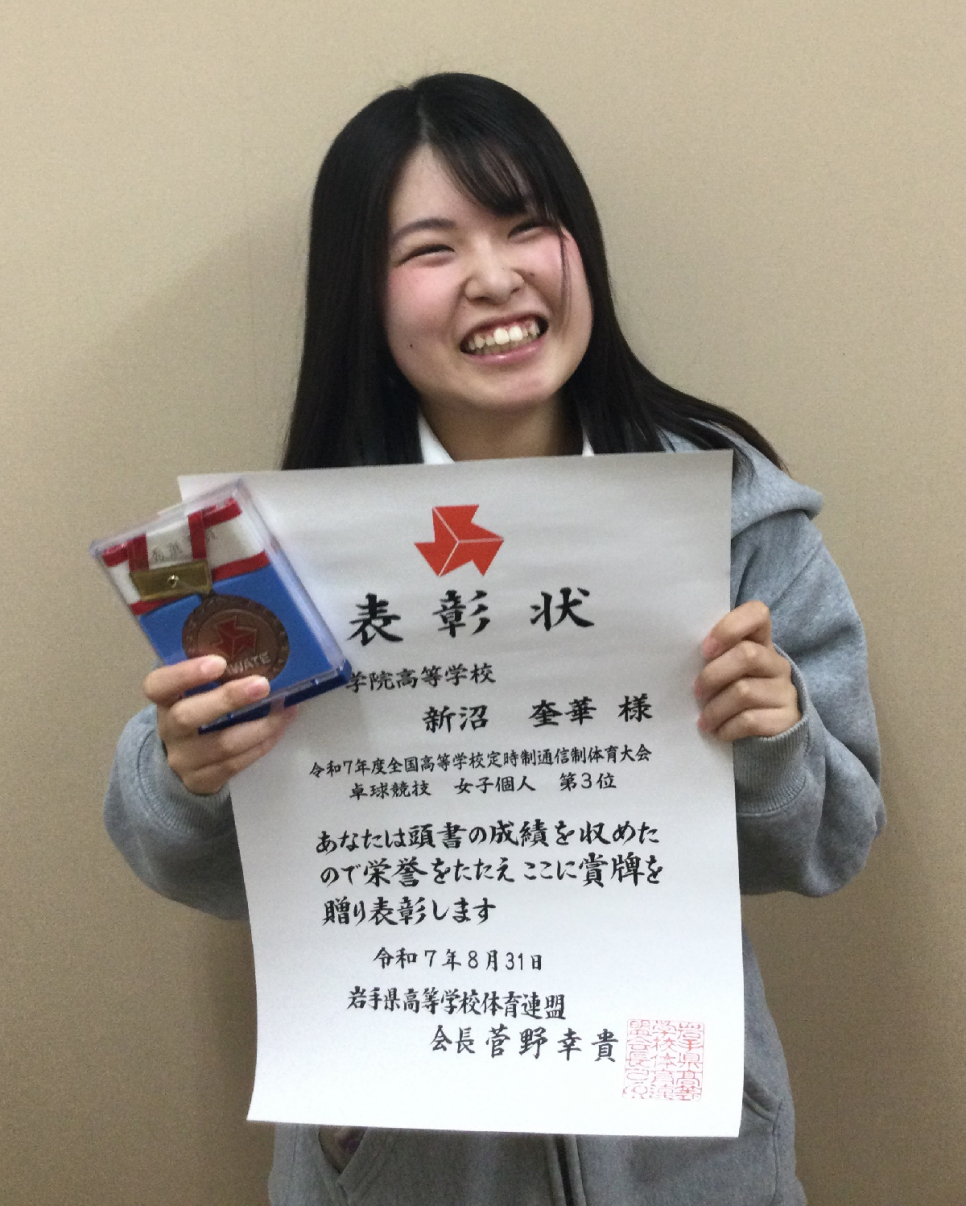 表彰状
学院高等学校
新沼 奎華 様
令和7年度全国高等学校定時制通信制体育大会
卓球競技 女子個人 第3位
あなたは頭書の成績を収めた
ので栄誉をたたえここに賞牌を
贈り表彰します
令和7年8月31日
岩手県高等学校体育連盟
会長 菅野幸貴